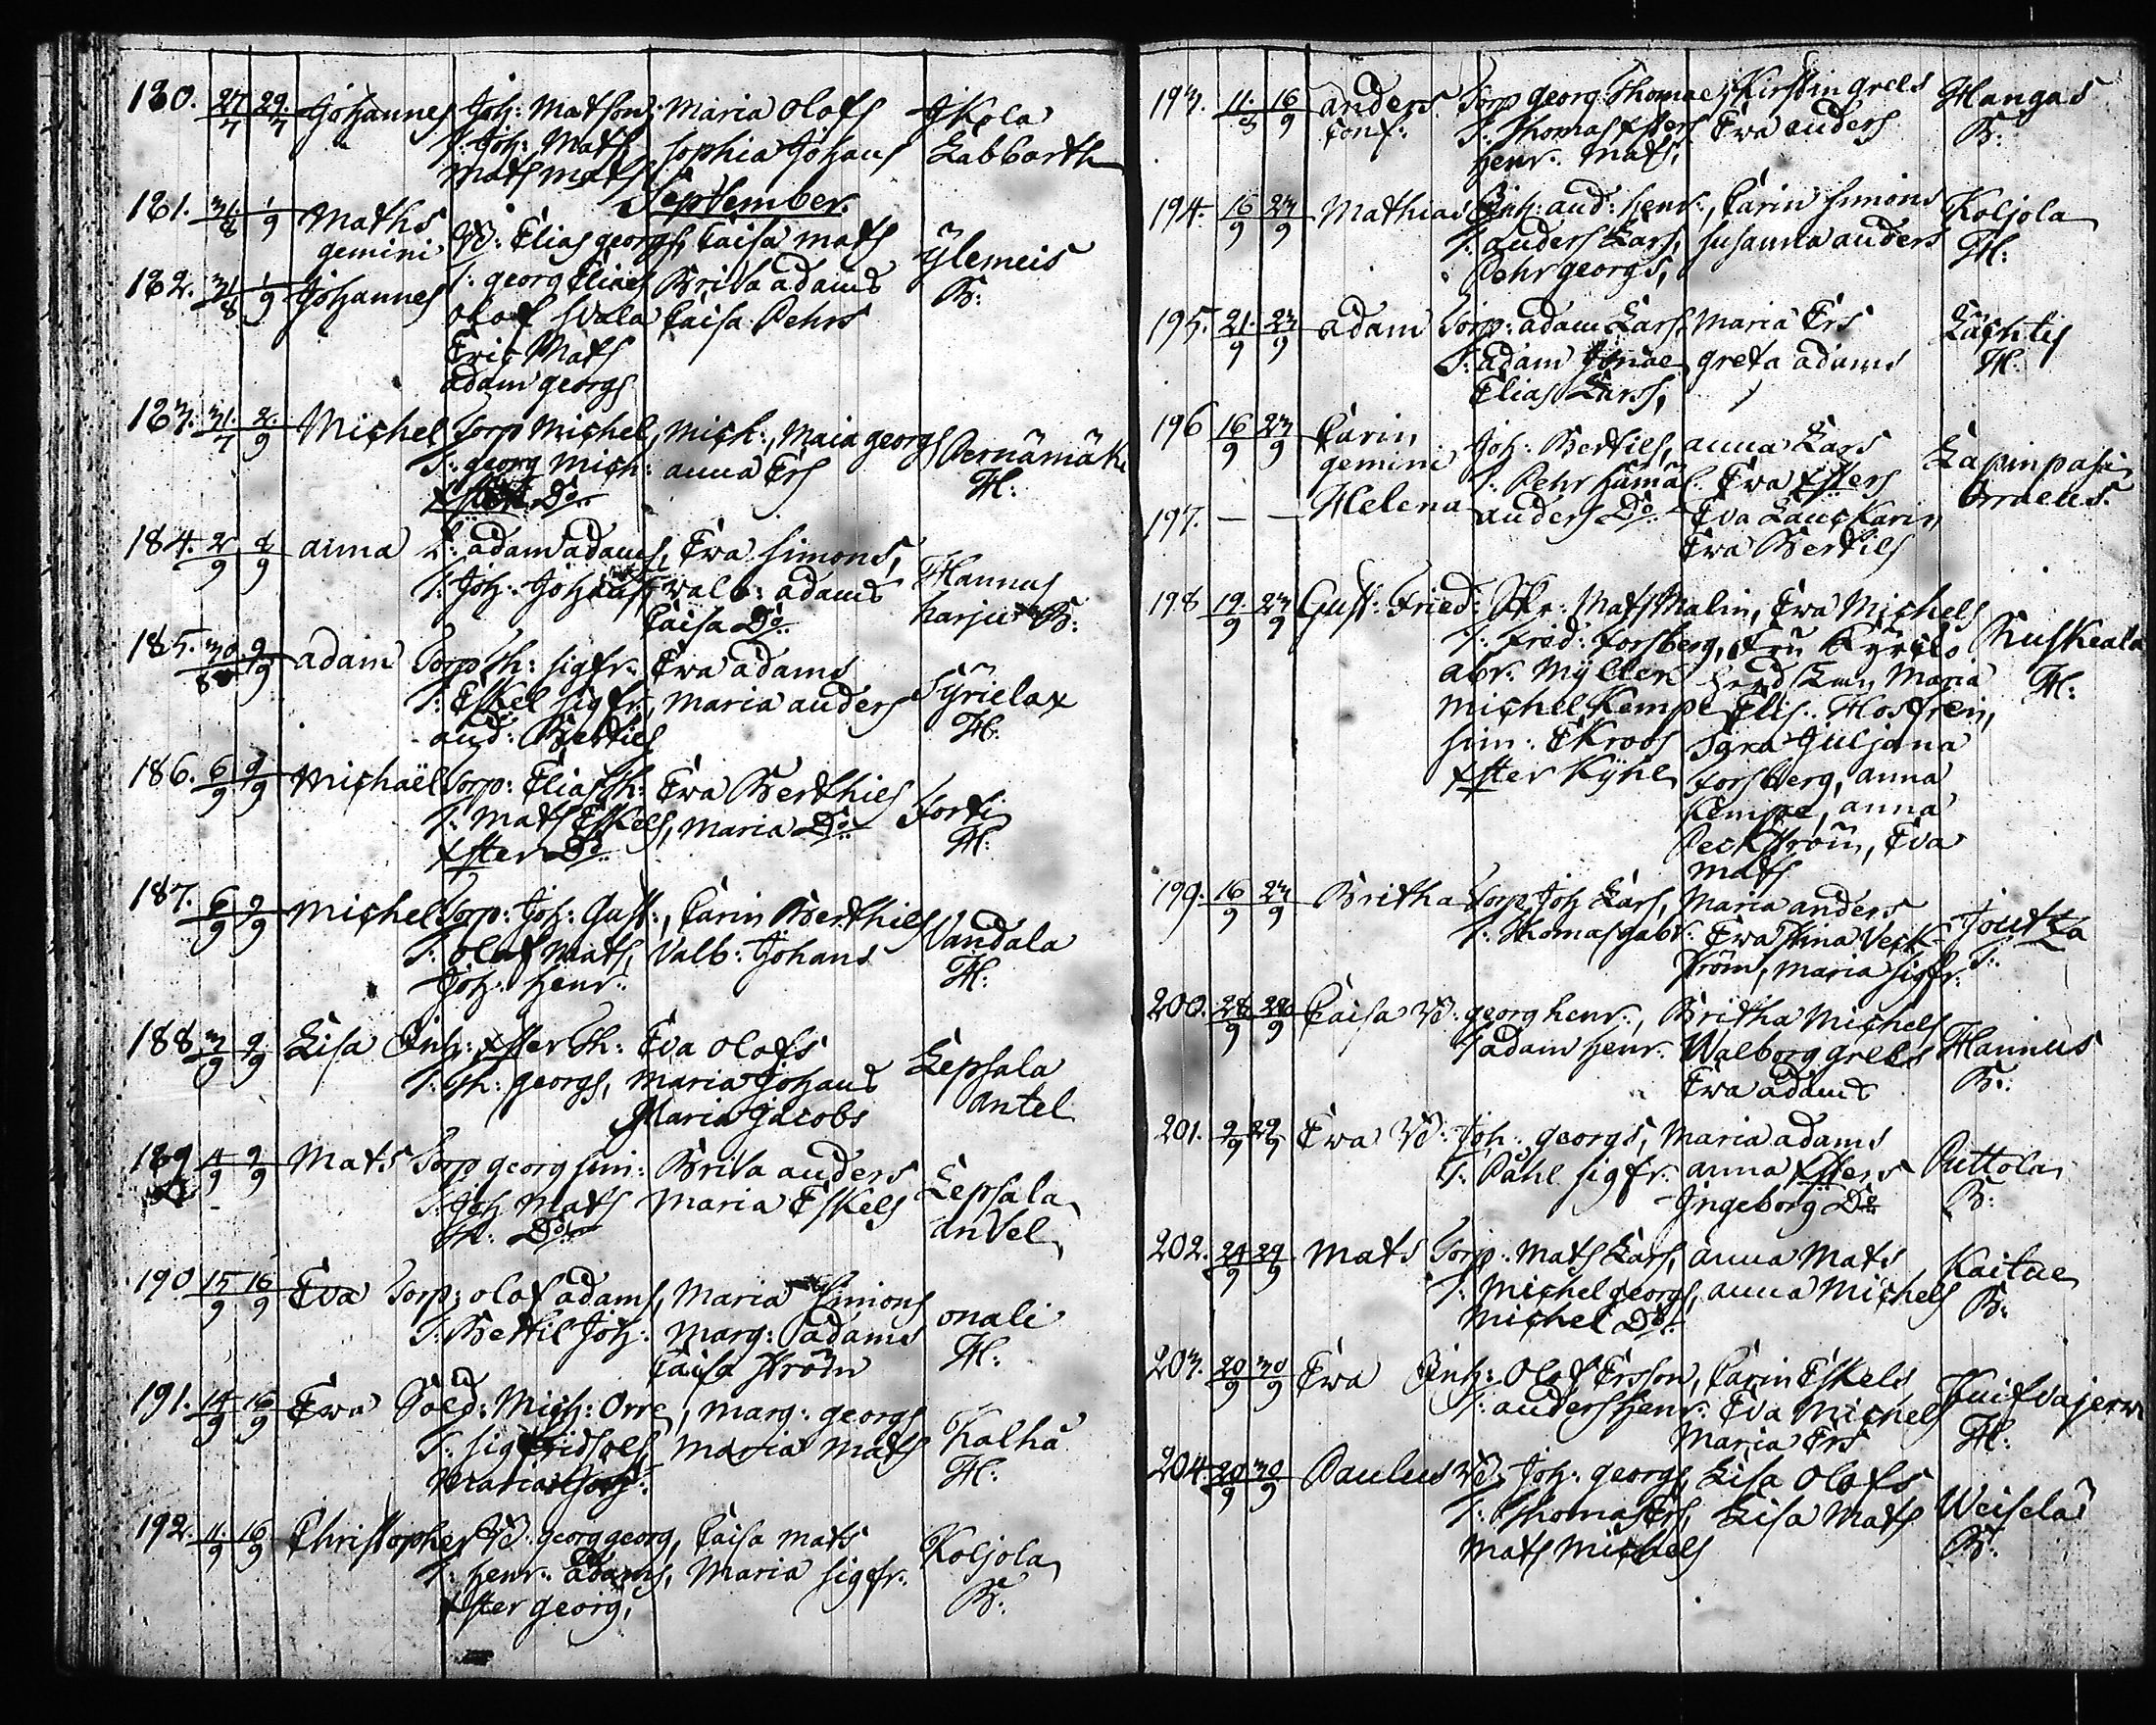 180. 27/7 29/7 Johannes Joh: Matson, Maria Olofs Ikola
T: Joh: Mats, Sophia Johans Labbarth
Mats Mats
September.
181. 31/8 1/9 Maths
gemini B: Elias georgs, Caisa Mats Ylemeis
182. 31/8 1/9 Johannes T: georg Elias Brita adams B:
Olof Caisa Pehrs
Eric Mats
adam georgs
183. 31/7 2/9 Michel Torp Michel Mich:, Maia georgs Pernämäki
T: georg Mich: anna Ers H:
Do
184. 2/9 8/9 anna adam adams, Ewa Simons, Hannus
T: Joh: Johans, Walb: adams harju B:
Caisa Do
185. 30/8 9/9 adam Torp Th: Sigfr: Ewa adams
T: Eskel Sigfr:, Maria anders Syrielax
and: Bertils H:
186. 6/9 9/9 Michaël Torp: Elias Th: Ewa Berthils
T: Mats Eskels, Maria Do Torti
Do H:
187. 6/9 9/9 Michel Torp: Joh: Gust:, Carin Berthils
T: Olof Mats, Valb: Johans Vandala
Joh: Henr: H:
188 3/9 9/9 Lisa Inh: Th: Eva Olofs Lepsala
T: Th: georgs, Maria Johans antel
Maria Jacobs
189 4/9 9/9 Mats Torp georg Sim: Brita anders
T: Joh Mats Maria Eskels Lepsala
Th: Do antel
190 15/9 16/9 Eva Torp: olof adams, Maria Simons
T: Bertil Joh: Marg: adams onali
Caisa Ström H:
191. 14/9 16/9 Ewa Sold: Mich: Orre, Marg: georgs Kalha
T: Sigfrid Maria Mats H:
Maria
192. 11/9 16/9 Christopher B: georg georg, Caisa Mats
T: Henr: Adams, Maria Sigfr: Koljola
georg, B:
193. 11/8 16/9 anders Torp georg Thomae, Kirstin grels Hangas
conf: T: Thomas Ewa anders B:
Henr: Mats,
194. 16/9 23/9 Mathias Inh: and: Henr:, Carin Simons Koljola
T: anders Lars, Susanna anders H:
Pehr georgs,
195. 21/9 23/9 adam Torp: adam Lars, Maria Ers Lachtis
T: adam Jonae greta adams H:
Elias Lars,
196 16/9 23/9 Carin
gemini Joh: Bertils, anna Lars Lapinpasi
T: Pehr Ewa
197. — — Helena anders Do Eva
Ewa Bertils
198 19/9 23/9 Gust: Fried: Mats Malin, Ewa Michels
T: Fred: Forsberg, Fru Ruskeala
abr: Myllen Maria H:
Michel Kempe Elis:
Sim: Ekroos Sara Juljana
Kyhl Forsberg, anna
Kempe, anna
Eva
Mats
199. 16/9 23/9 Britha Torp Joh Lars, Maria anders
T: Thomas gabr: Ewa Stina Veck- Joutza
ström, Maria Sigfr: T:
200. 28/9 28/9 Caisa B: georg Henr:, Britha Michels
T adam Henr: Walborg grels Hannus
Ewa adams B:
201. 9/9 29/9 Ewa B: Joh: georgs, Maria adams
T: Påhl Sigfr: anna Puttola
Ingeborg Do B:
202. 24/9 29/9 Mats Torp: Mats Lars, anna Mats Kaitae
T: Michel georgs, anna Michels B:
Michel Do
203. 20/9 30/9 Ewa Inh: Olof Ersson, Carin Eskels
T: anders Henr: Eva Michels
Maria Ers H:
204. 20/9 30/9 Paulus B: Joh: georgs, Lisa Olofs
T: Thomas Ers, Lisa Mats Weisela
Mats Michels B: